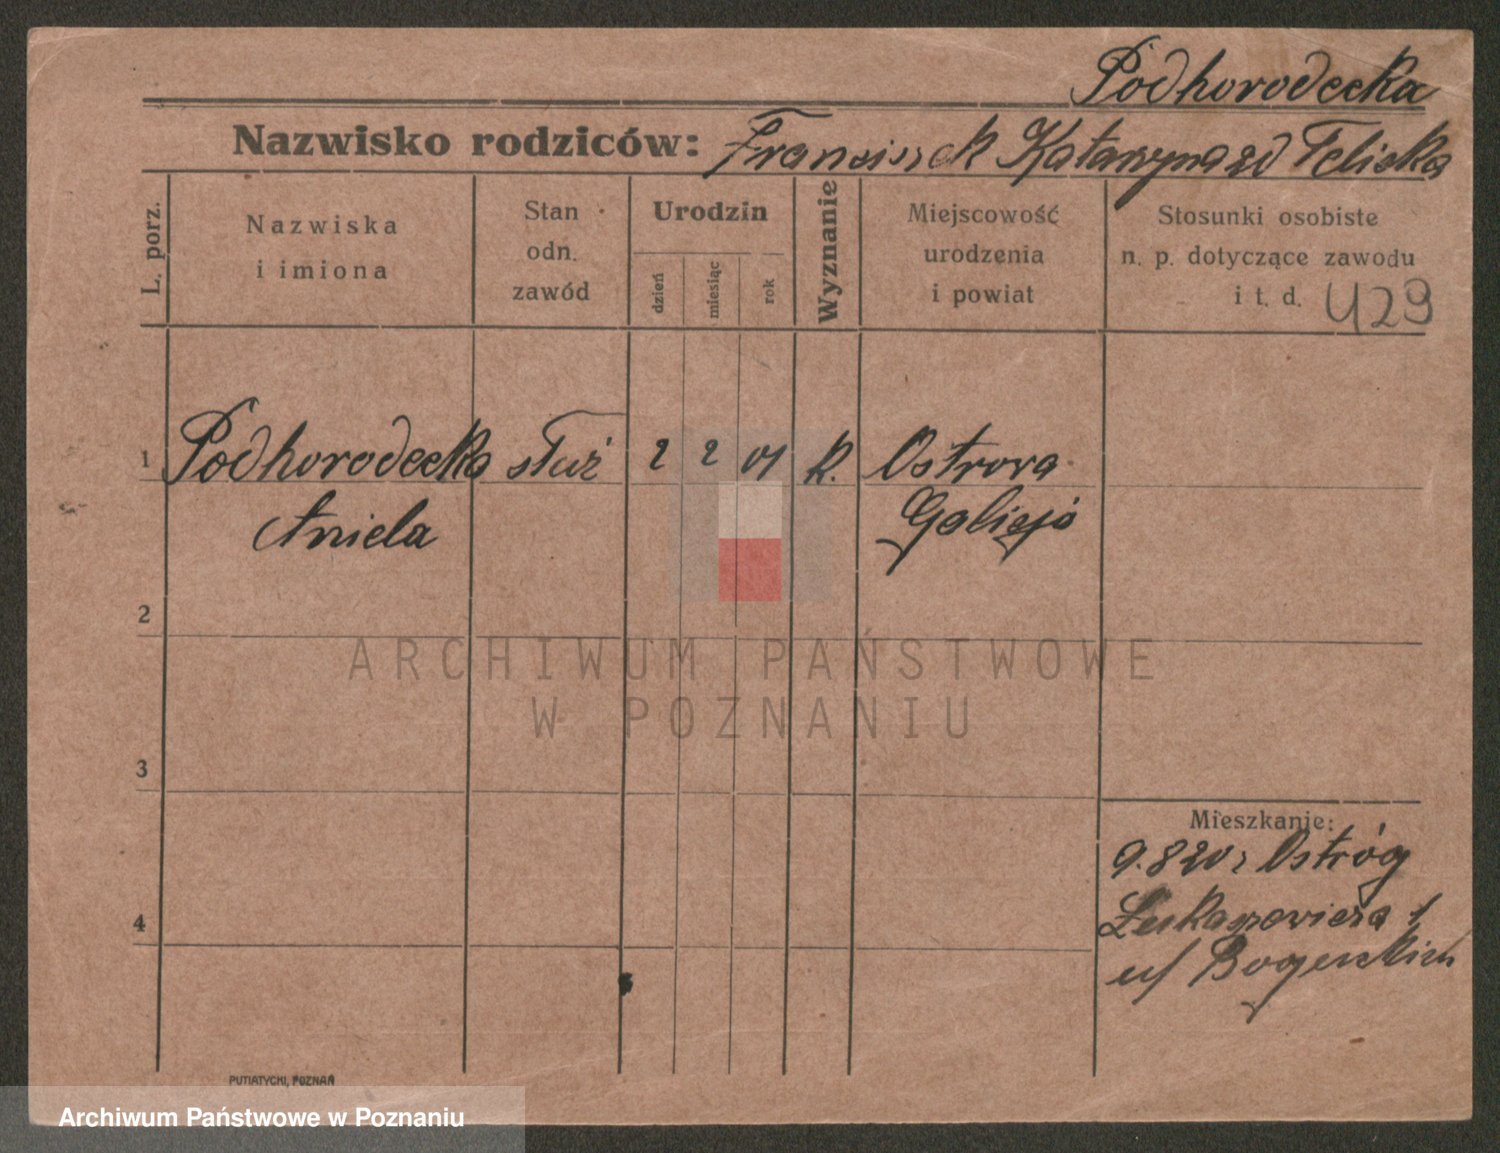 Podhorodecka
Nazwisko rodziców: Franciszek Katarzyna zd Feliska
L. porz.
Nazwiska
i imiona
Stan
odn.
zawód
Urodzin
dzień
miesiąc
rok
Wyznanie
Miejscowość
urodzenia
i powiat
Stosunki osobiste
n. p. dotyczące zawodu
i t. d. 429
1 Podhorodecka służ 2 2 01 k. Ostrova
Aniela Galicja
2
ARCHIWUM PAŃSTWOWE
W POZNANIU
3
Mieszkanie:
9.8 20 z Ostróg
4
Łukaszewicza 1
u/
PUTIATYCKI, POZNAŃ
Archiwum Państwowe w Poznaniu